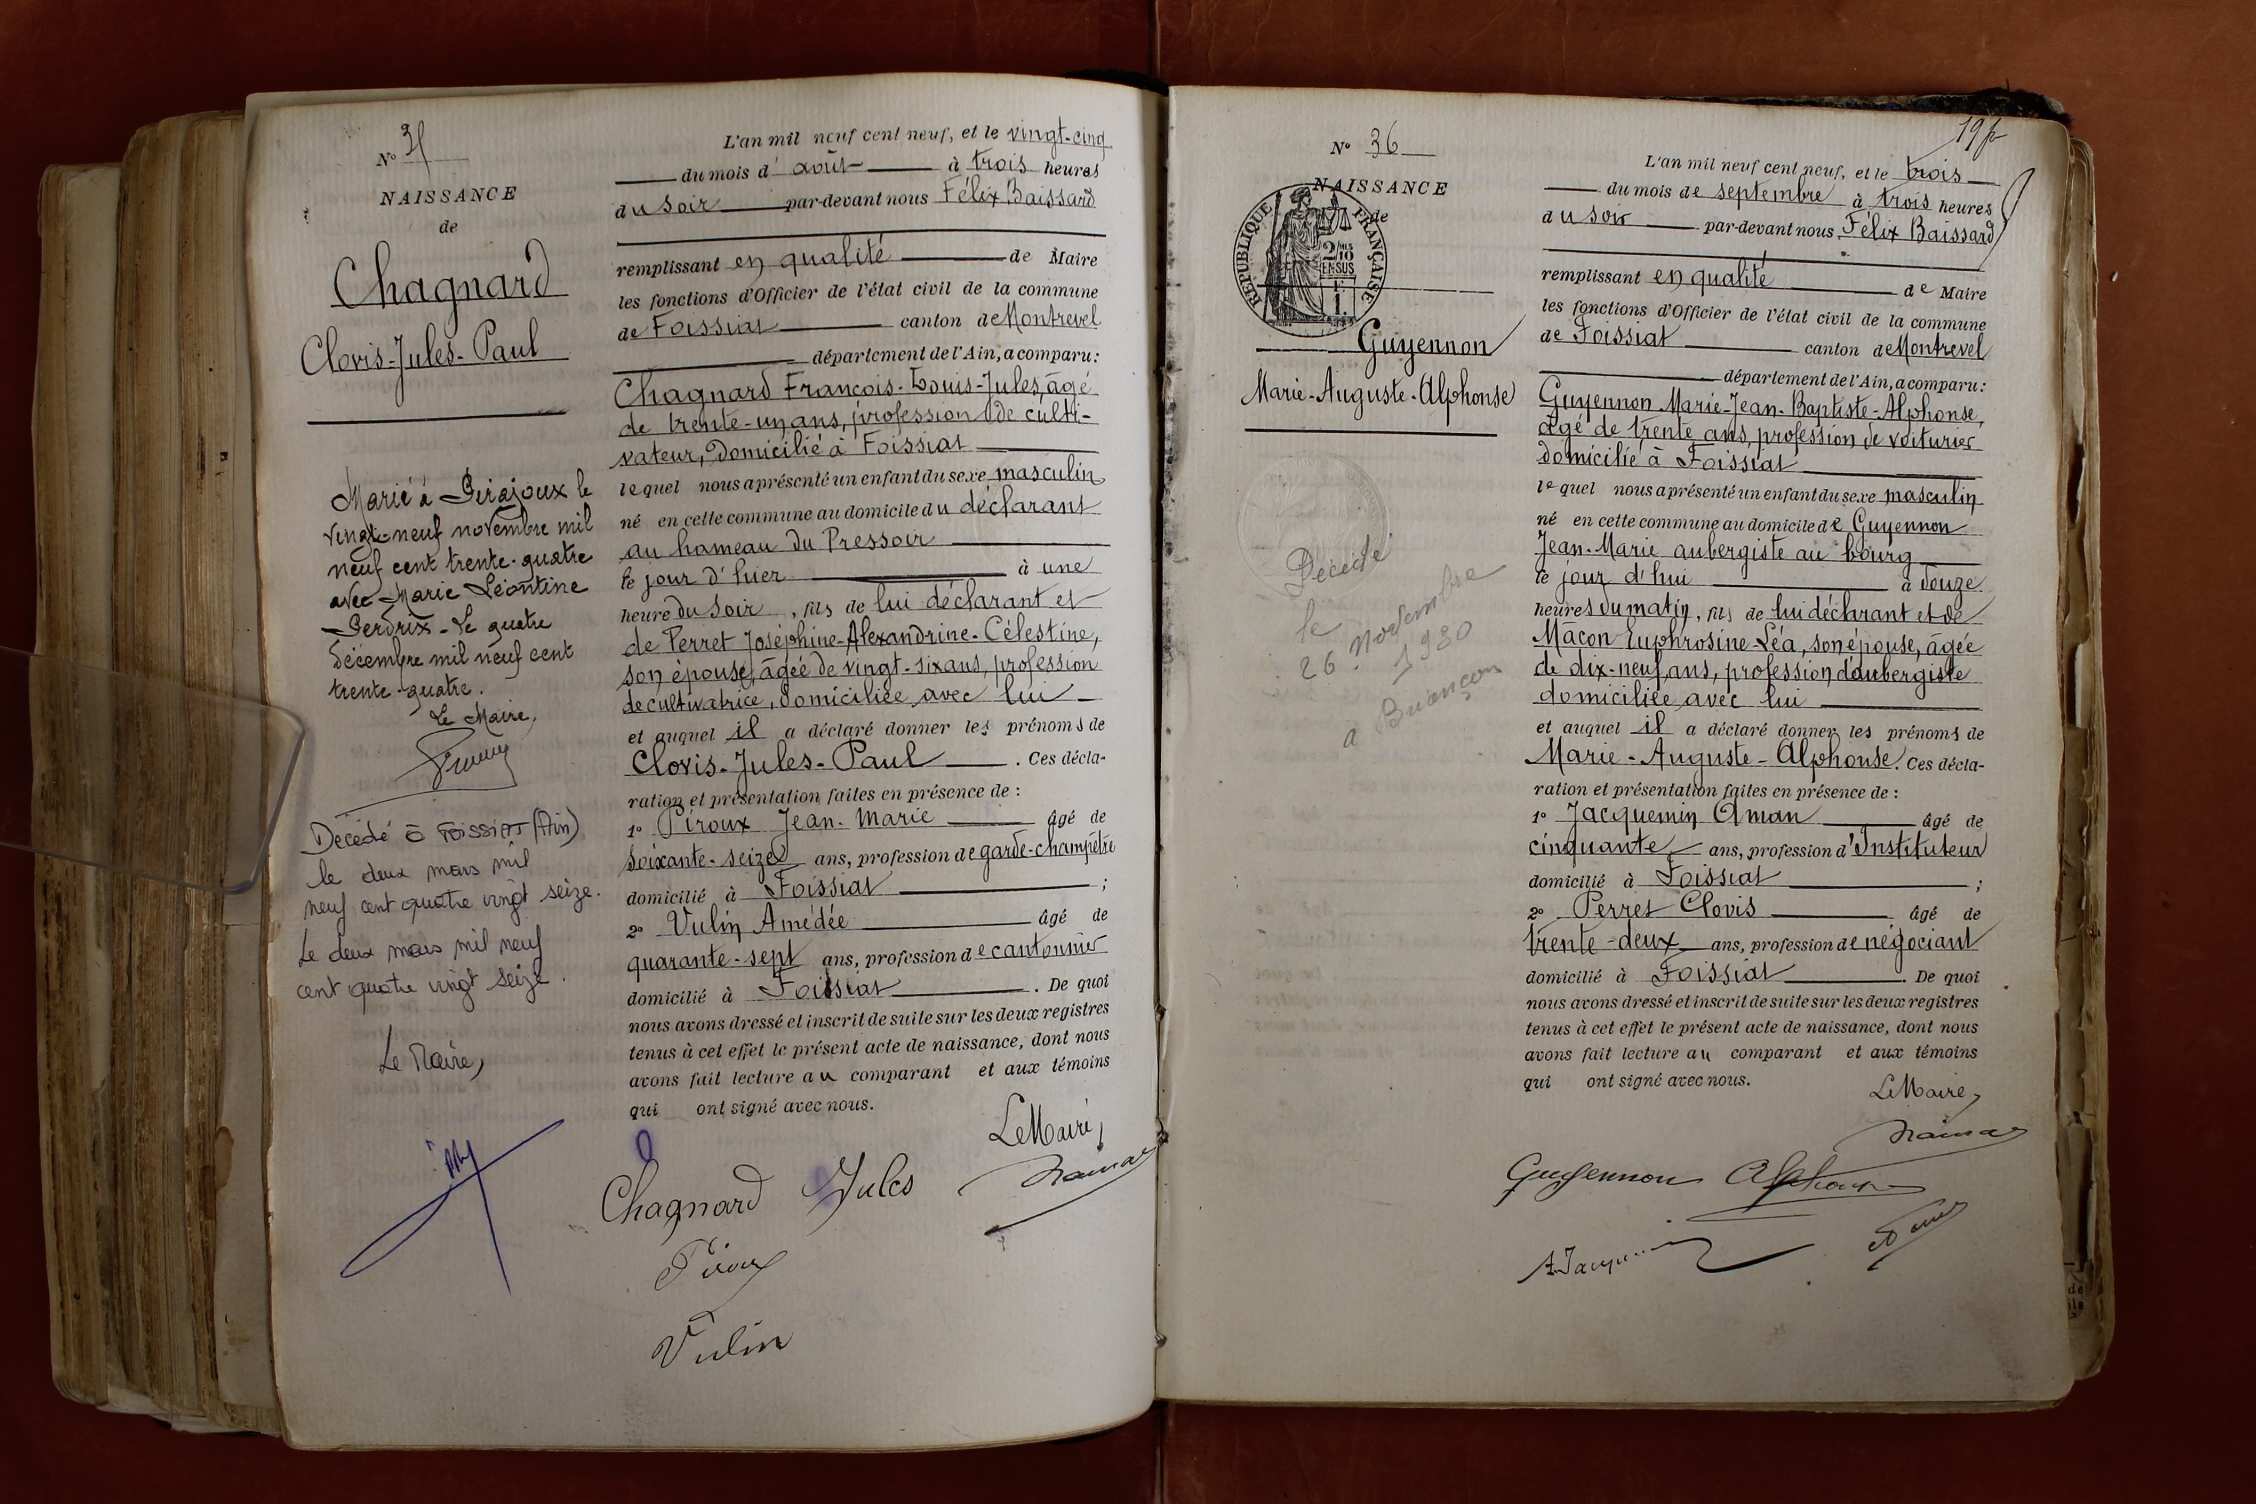 N° 35
NAISSANCE
de
Chagnard
Clovis-Jules-Paul
Marié à Jirajoux le
vingt-neuf novembre mil
neuf cent trente-quatre
avec Marie Léontine
Perdrix - Le quatre
décembre mil neuf cent
trente-quatre.
Le Maire,
Décédé à FOISSIAT (Ain)
le deux mars mil
neuf cent quatre vingt seize.
Le deux mars mil neuf
cent quatre vingt seize.
Le Maire,
L'an mil neuf cent neuf, et le vingt-cinq
du mois d'août à trois heures
du soir par-devant nous Félix Baissard
remplissant en qualité de Maire
les fonctions d'Officier de l'état civil de la commune
de Foissiat canton de Montrevel
département de l'Ain, a comparu:
Chagnard François-Louis-Jules, âgé
de trente-un ans, profession de culti-
vateur, domicilié à Foissiat
lequel nous a présenté un enfant du sexe masculin
né en cette commune au domicile du déclarant
au hameau du Pressoir
le jour d'hier à une
heure du soir, fils de lui déclarant et
de Perret Joséphine-Alexandrine-Célestine,
son épouse, âgée de vingt-six ans, profession
de cultivatrice, domiciliée avec lui
et auquel il a déclaré donner les prénoms de
Clovis-Jules-Paul. Ces décla-
ration et présentation faites en présence de :
1° Piroux Jean-Marie âgé de
soixante-seize ans, profession de garde-champêtre
domicilié à Foissiat ;
2° Vulin Amédée âgé de
quarante-sept ans, profession de cantonnier
domicilié à Foissiat. De quoi
nous avons dressé et inscrit de suite sur les deux registres
tenus à cet effet le présent acte de naissance, dont nous
avons fait lecture au comparant et aux témoins
qui ont signé avec nous.
Le Maire,
Chagnard Jules
Piroux
Vulin
19
N° 36
NAISSANCE
de
REPUBLIQUE FRANÇAISE
2/10 EN SUS
Guyennon
Marie-Auguste-Alphonse
Décédé
le
26 Novembre
1980
à Briançon
L'an mil neuf cent neuf, et le trois
du mois de septembre à trois heures
du soir par-devant nous Félix Baissard
remplissant en qualité de Maire
les fonctions d'Officier de l'état civil de la commune
de Foissiat canton de Montrevel
département de l'Ain, a comparu:
Guyennon Marie-Jean-Baptiste-Alphonse,
âgé de trente ans, profession de voiturier
domicilié à Foissiat
lequel nous a présenté un enfant du sexe masculin
né en cette commune au domicile de Guyennon
Jean-Marie aubergiste au bourg
le jour d'hui à douze
heures du matin, fils de lui déclarant et de
Mâcon Euphrosine-Léa, son épouse, âgée
de dix-neuf ans, profession d'aubergiste
domiciliée avec lui
et auquel il a déclaré donner les prénoms de
Marie-Auguste-Alphonse. Ces décla-
ration et présentation faites en présence de :
1° Jacquemin Aman âgé de
cinquante ans, profession d'Instituteur
domicilié à Foissiat ;
2° Perret Clovis âgé de
trente-deux ans, profession de négociant
domicilié à Foissiat. De quoi
nous avons dressé et inscrit de suite sur les deux registres
tenus à cet effet le présent acte de naissance, dont nous
avons fait lecture au comparant et aux témoins
qui ont signé avec nous.
Le Maire,
Guyennon Alphonse
A. Jacquemin